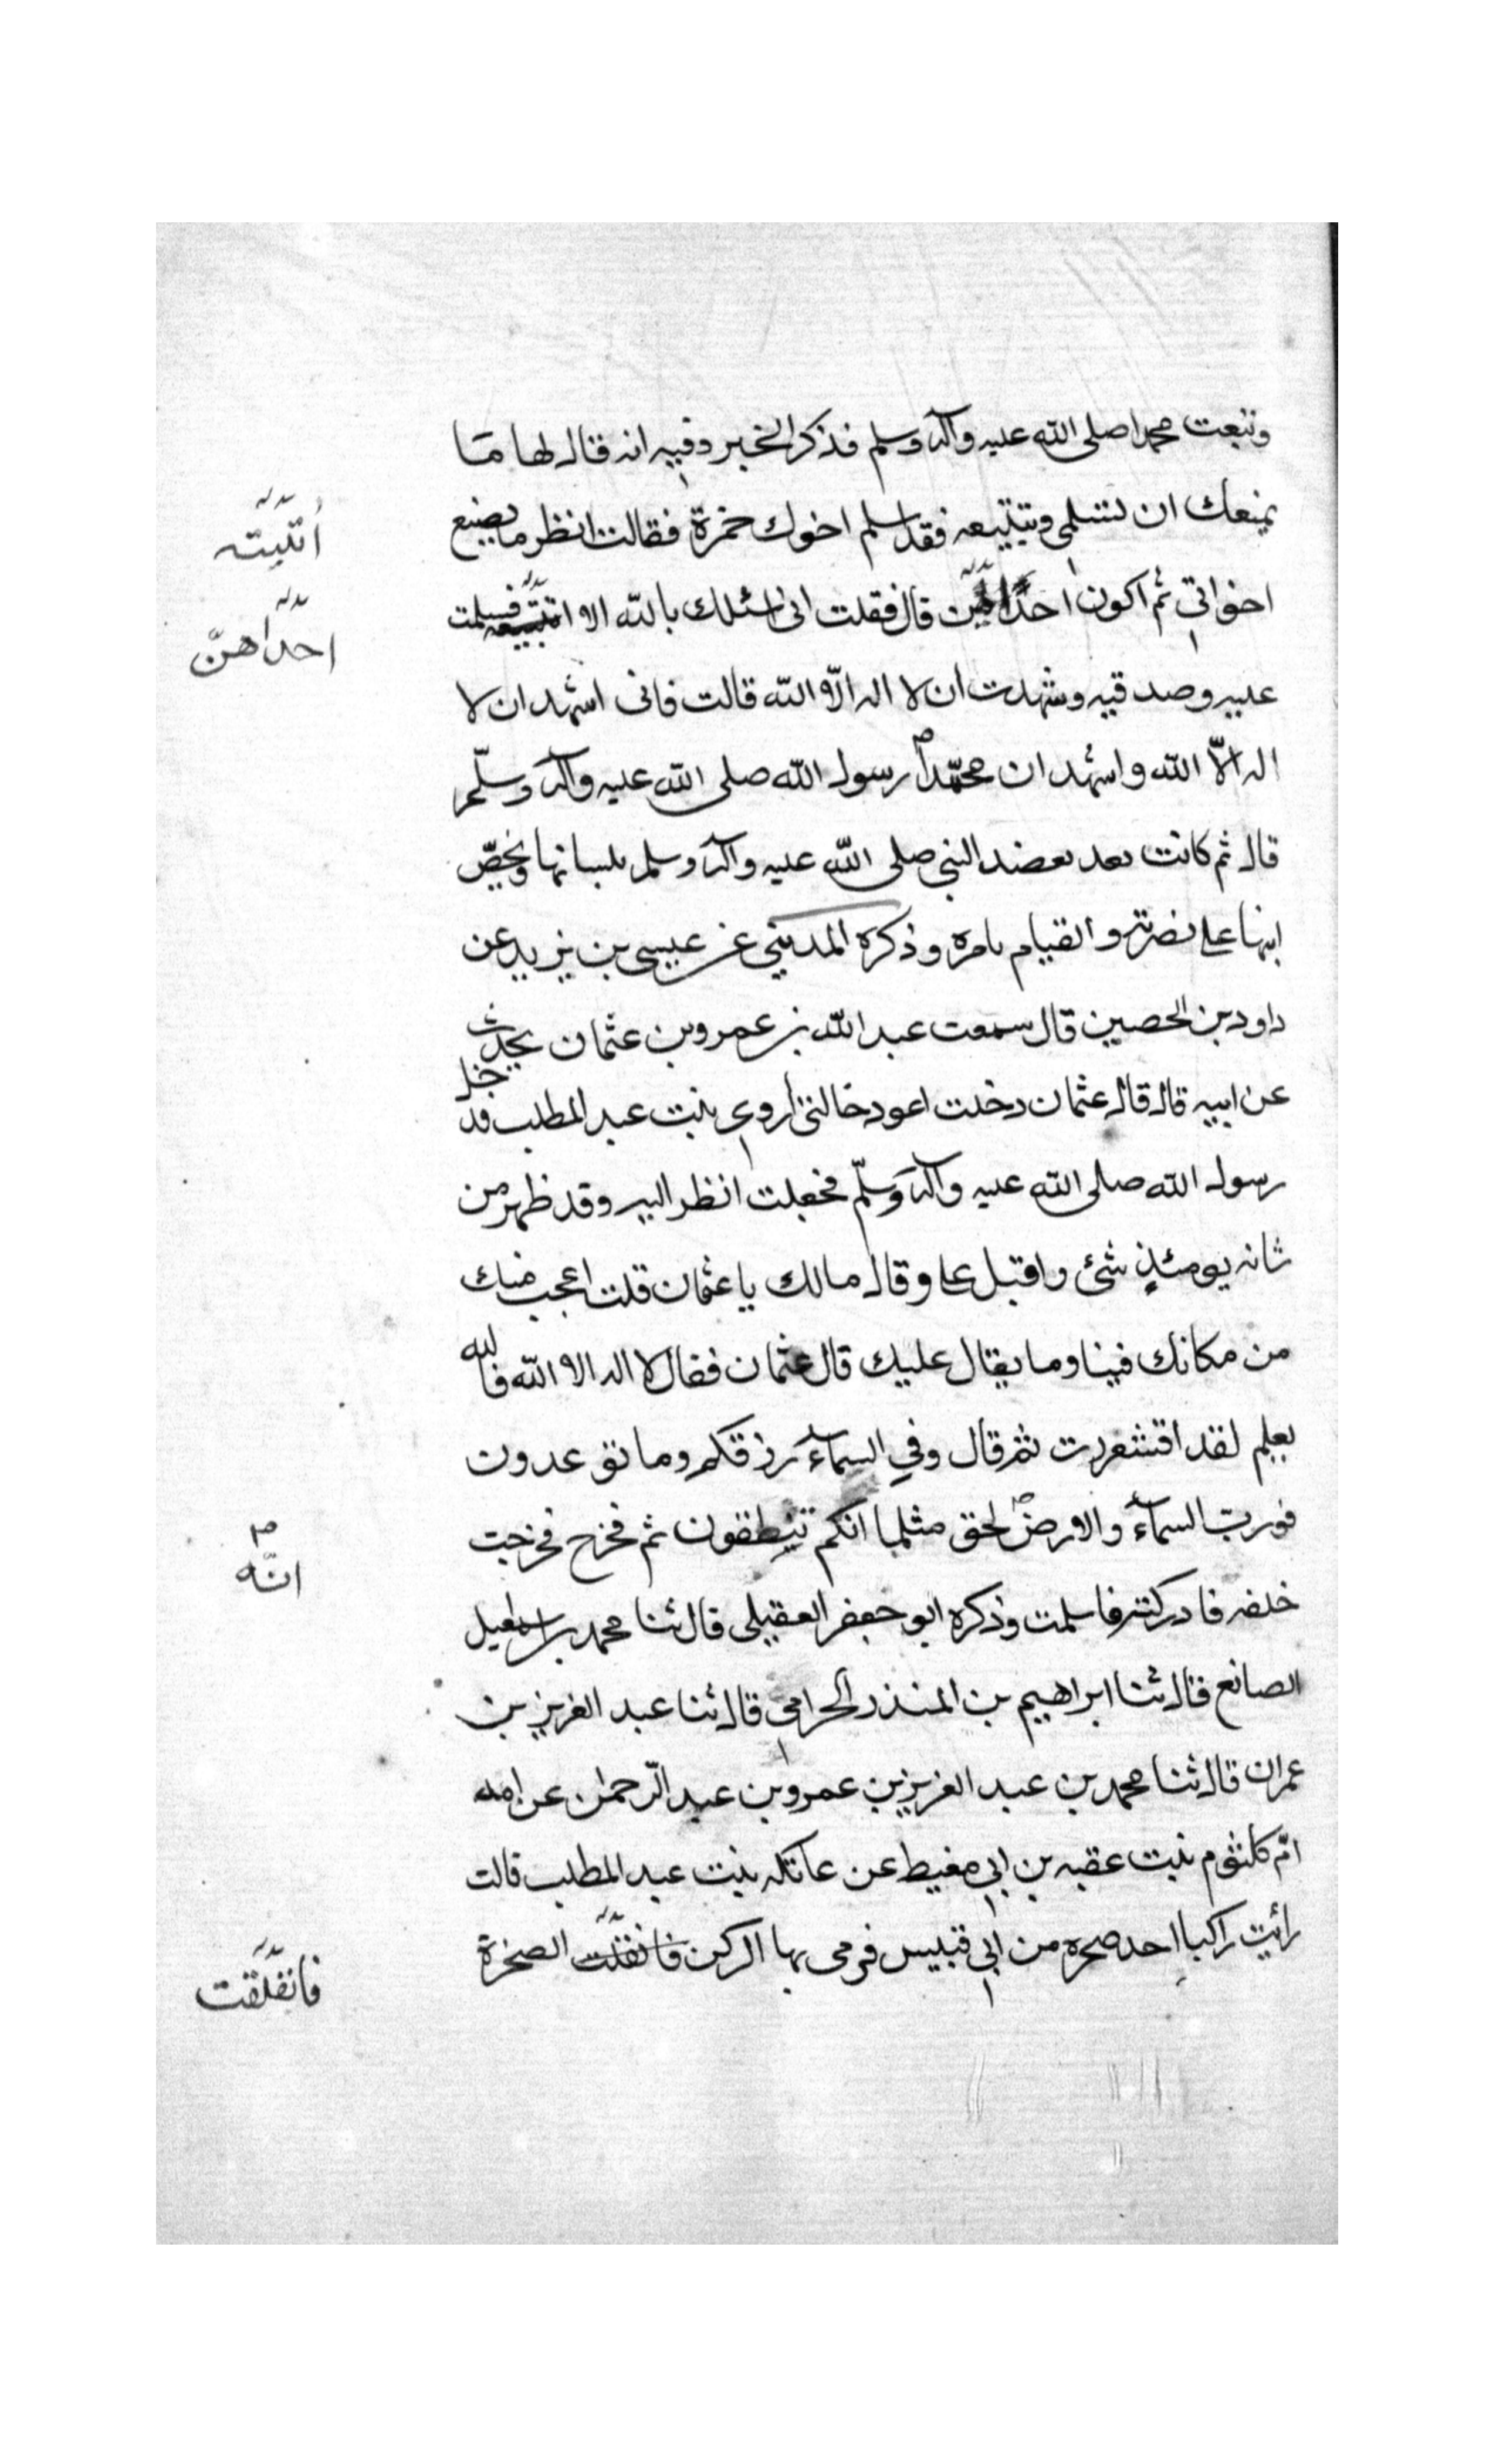 وتبعت محمدا صلى الله عليه وآله وسلم فذكر الخبر وفيه انه قال لها مَا
يمنعك ان تسلمي وتتبيعه فقد اسلم اخوك حمزة فقالت انظر ما يصنع
اخواتي ثم اكون احدًا قال فقلت انى اسئلك بالله الا فسلمت
عليه وصدقيه وشهدت ان لا اله الّا الله قالت فانى اشهد ان لا
اله الّا الله واشهد ان محمّداً رسول الله صلى الله عليه وآله وسلّم
قال ثم كانت بعد تعضد النبي صلى الله عليه وآله وسلم بلسانها وتحضّ
ابنها على نصرته والقيام بامره وذكره المديني عن عيسى بن يزيد عن
داود بن الحصين قال سمعت عبد الله بن عمرو بن عثمان يحدث
عن ابيه قال قال عثمان دخلت اعود خالتي اروى بنت عبد المطلب فدخل
رسول الله صلى الله عليه وآله وسلّم فجعلت انظر اليه وقد ظهر من
شانه يومئذٍ شئ واقبل على وقال مالك يا عثمان قلت اعجب منك
من مكانك فينا وما يقال عليك قال عثمان فقال لا اله الا الله فالله
يعلم لقد اقشعررت ثم قال وفي السمآء رزقكم وما توعدون
فورب السمآء والارض لحق مثلما انكم تنطقون ثم فخرج فخرجت
خلفه فادركته فاسلمت وذكره ابو جعفر العقيلى قال ثنا محمد بن اسمعيل
الصانع قال ثنا ابراهيم بن المنذر الحرامي قال ثنا عبد العزيز بن
عمران قال ثنا محمد بن عبد العزيز بن عمرو بن عبد الرّحمٰن عن امه
امّ كلثوم بنت عقبه بن ابي معيط عن عاتكه بنت عبد المطلب قالت
رأيت راكبا احد صحره من ابي قبيس فرمى بها الركن فانفلّت الصخرة
أتَيتَه
احدَاهنّ
انّه
فانفَلَقت